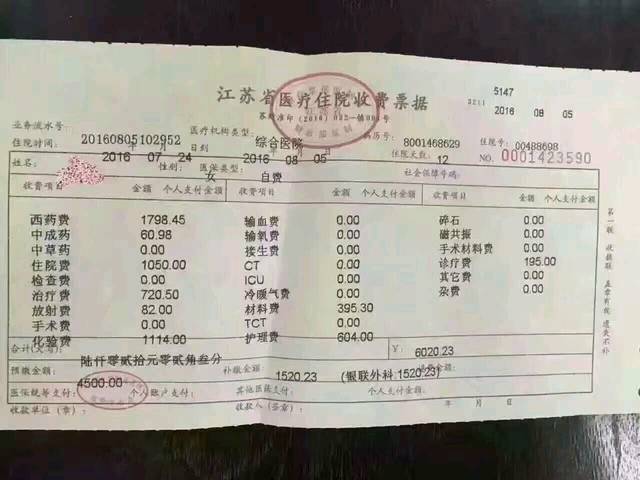 5147
3211 2016 08 05
江苏省医疗住院收费票据
业务流水号: 20160805102952 医疗机构类型: 综合医院 病历号: 8001468629 住院号: 00488698
住院时间: 2016 年 07 月 24 日到 2016 08 05 住院天数: 12 NO. 0001423590
姓名: 性别: 女 医保类型: 自费 社会保障号码:
收费项目 金额 个人支付金额 收费项目 金额 个人支付金额 收费项目 金额 个人支付金额
西药费 1798.45 输血费 0.00 碎石 0.00
中成药 60.98 输氧费 0.00 磁共振 0.00
中草药 0.00 接生费 0.00 手术材料费 0.00
住院费 1050.00 CT 0.00 诊疗费 195.00
检查费 0.00 ICU 0.00 其它费 0.00
治疗费 720.50 冷暖气费 0.00 杂费 0.00
放射费 82.00 材料费 395.30
手术费 0.00 TCT 0.00
化验费 1114.00 护理费 604.00
合计(大写): 陆仟零贰拾元零贰角叁分 ¥: 6020.23
预缴金额: 4500.00 补缴金额: 1520.23 (银联外科:1520.23)
医保统筹支付: 个人账户支付: 其他医保支付:
收款单位(章): 收款人(签章): 年 月 日
第一联 收据联 盖章有效 遗失不补